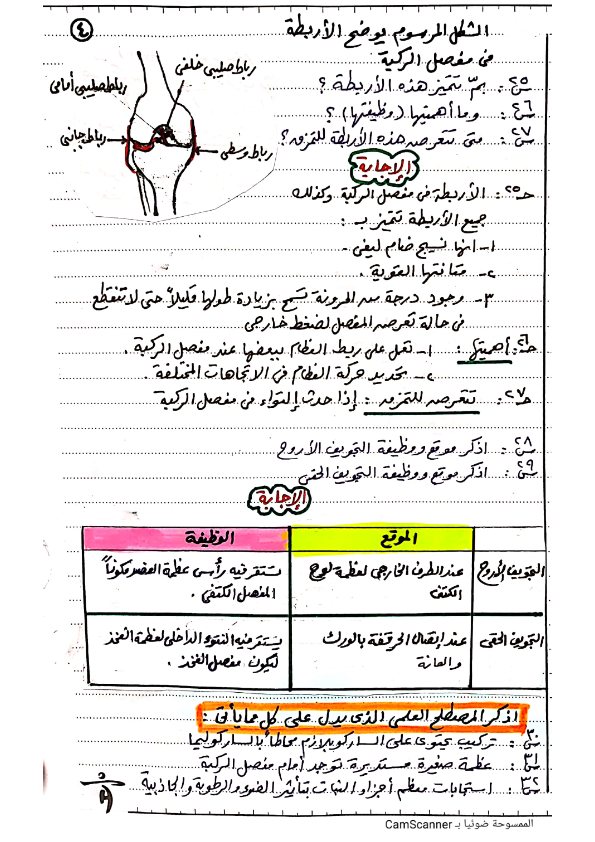 ٤
الشكل المرسوم يوضح الأربطة
فى مفصل الركبة
رباط صليبى خلفى
رباط صليبى أمامى
رباط جانبى
رباط وسطى
س٢٥: بم تتميز هذه الأربطة ؟
س٢٦: وما أهميتها (وظيفتها) ؟
س٢٧: متى تتعرض هذه الأربطة للتمزق ؟
الإجابة
جـ٢٥: الأربطة فى مفصل الركبة وكذلك
جميع الأربطة تتميز بـ :
١- انها نسيج ضام ليفى .
٢- متانتها القوية .
٣- وجود درجة من المرونة تسمح بزيادة طولها قليلاً حتى لا تنقطع
فى حالة تعرض المفصل لضغط خارجى
جـ٢٦: أهميتها : ١- تعمل على ربط العظام ببعضها عند مفصل الركبة .
٢- تحديد حركة العظام فى الاتجاهات المختلفة .
جـ٢٧: تتعرض للتمزق : إذا حدث إلتواء فى مفصل الركبة
س٢٨: اذكر موقع ووظيفة التجويف الأروح
س٢٩: اذكر موقع ووظيفة التجويف الحقى
الإجابة
الموقع الوظيفة
التجويف الأروح عند الطرف الخارجى لعظمة لوح الكتف تستقر فيه رأس عظمة العضد مكوناً المفصل الكتفى .
التجويف الحقى عند إتصال الحرقفة بالورك والعانة يستقر فيه النتوء الداخلى لعظمة الفخذ ليكون مفصل الفخذ .
اذكر المصطلح العلمى الذى يدل على كل مما يأتى :
س٣٠: تركيب يحتوى على الساركوبلازم محاطاً بالساركوليما
س٣١: عظمة صغيرة مستديرة توجد أمام مفصل الركبة
س٣٢: استجابات معظم أجزاء النبات بتأثير الضوء والرطوبة والجاذبية
الممسوحة ضوئيا بـ CamScanner